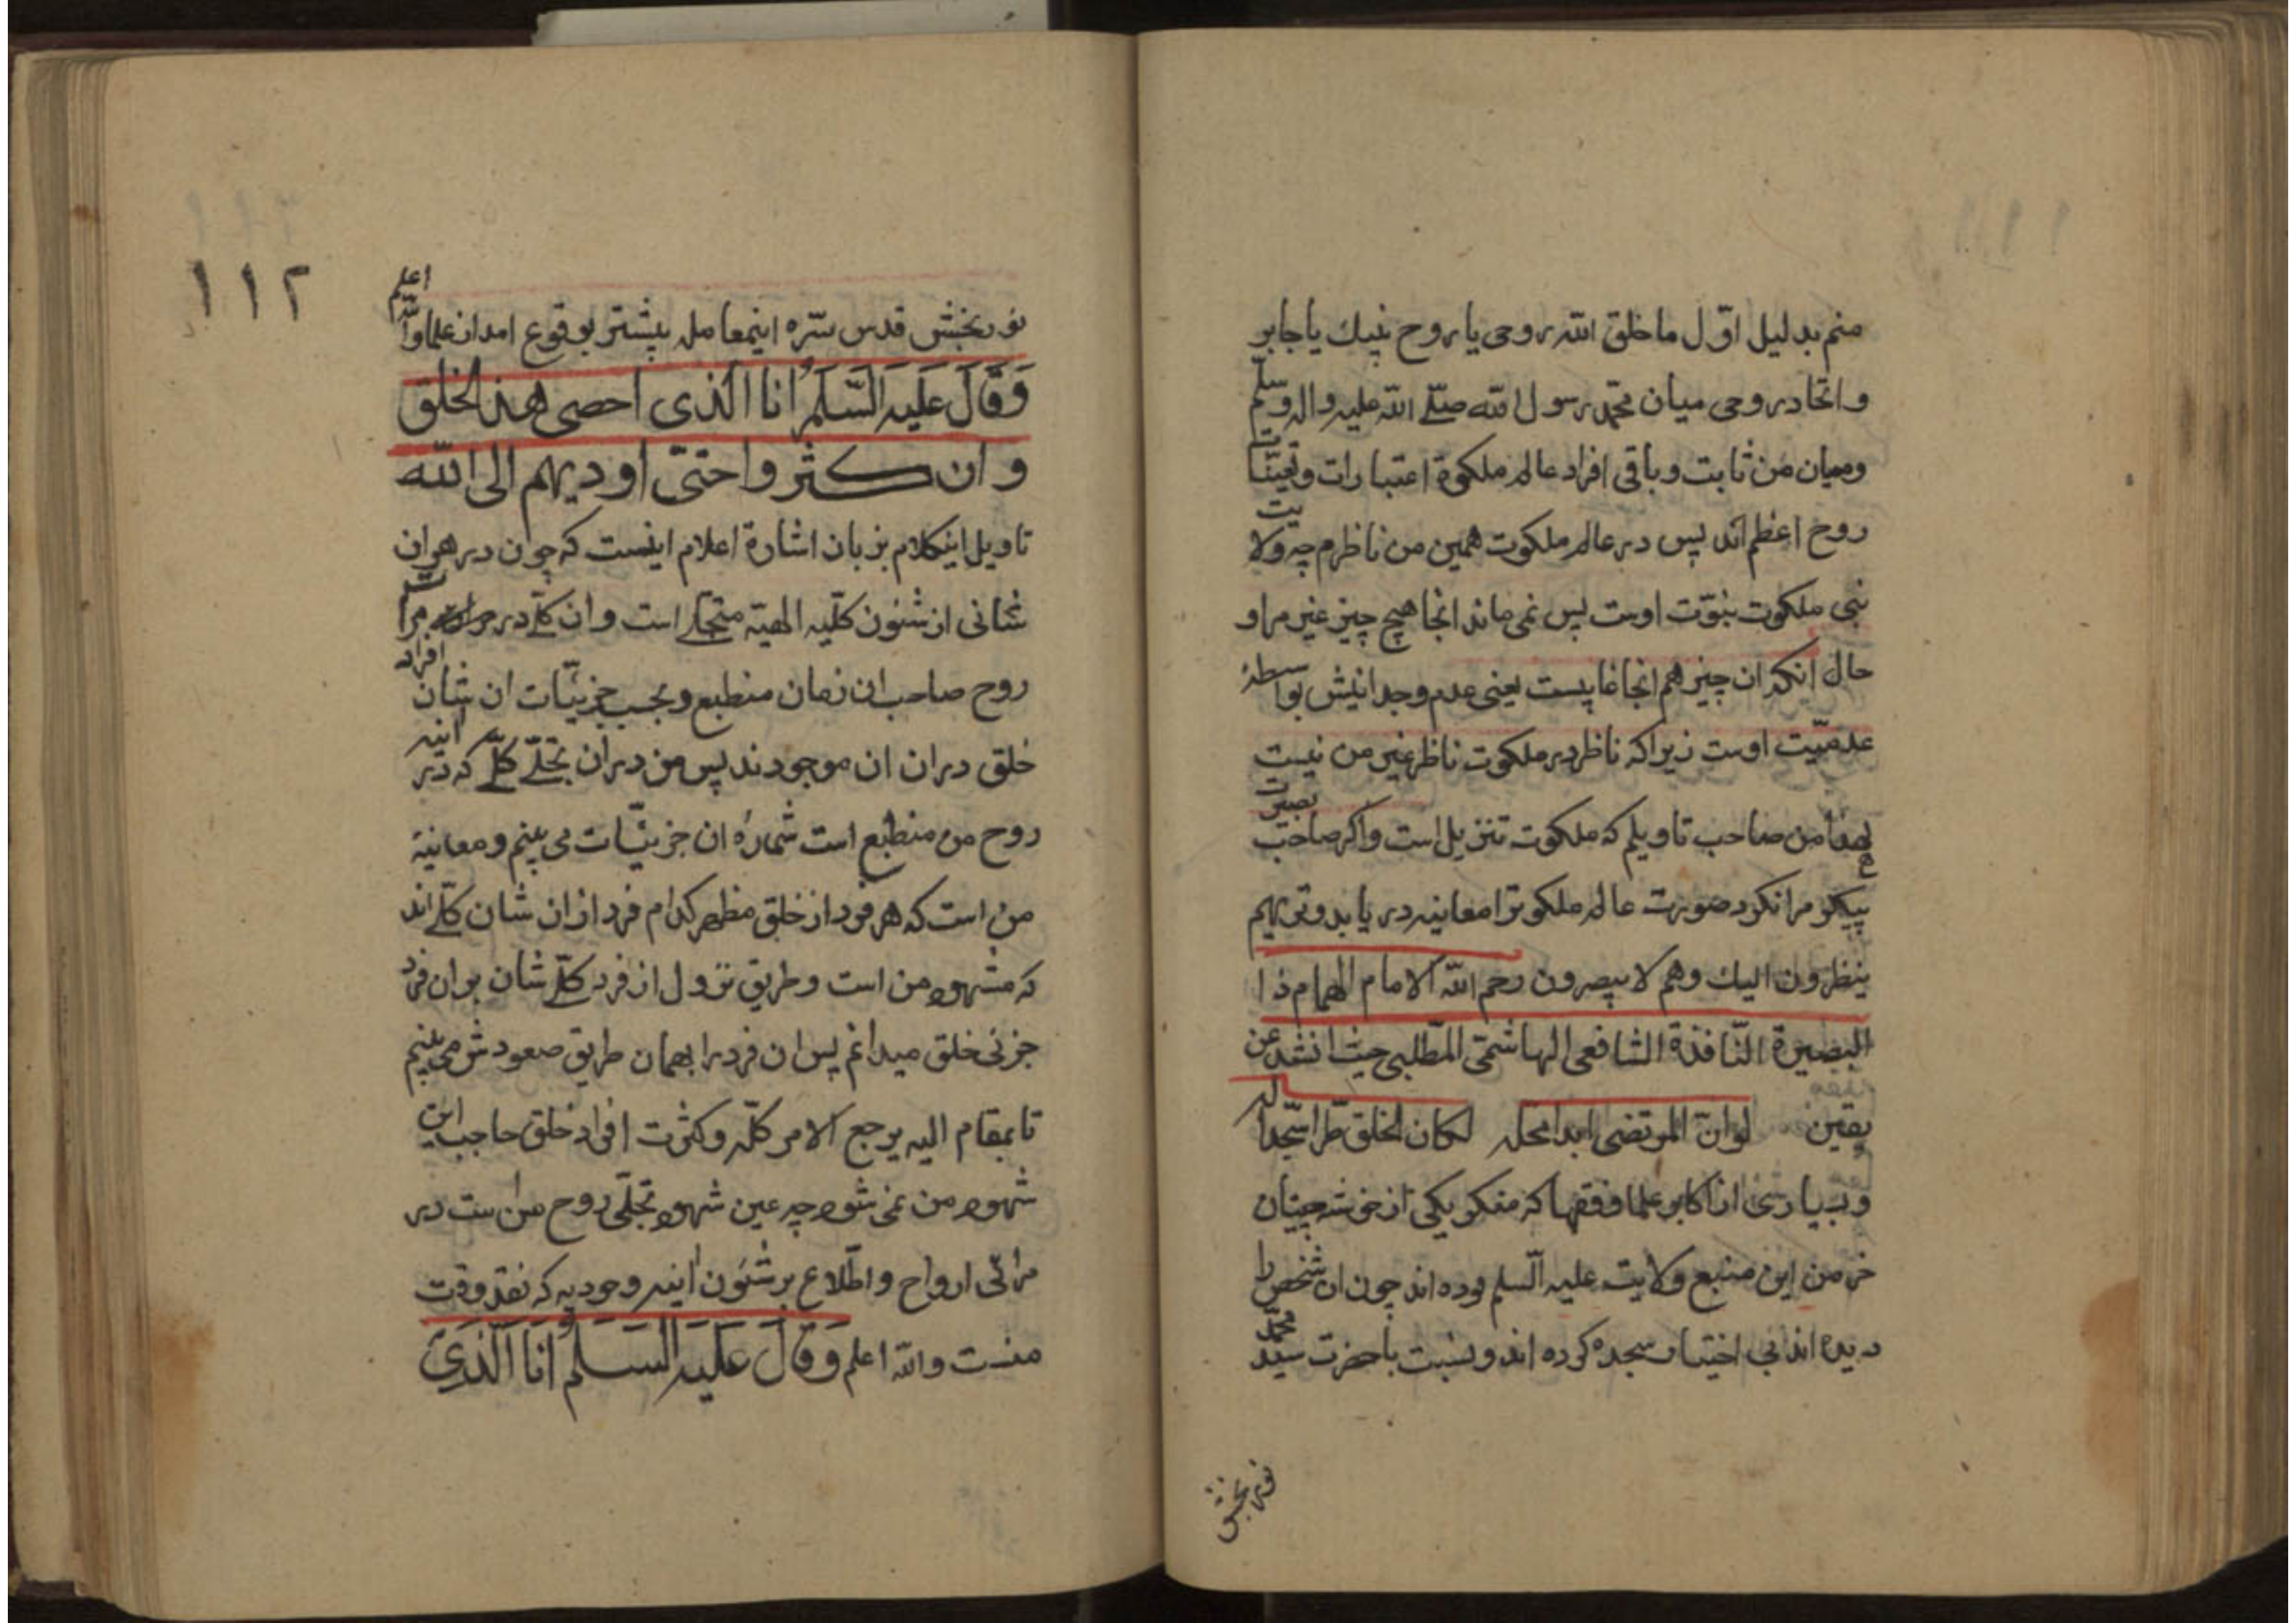 منم بدلیل اوّل ما خلق الله روحی یا روح نبیك یا جابر
و اتحاد روحی میان محمّد رسول الله صلّے الله علیه واله وسلّم
ومیان من ثابت و باقی افراد عالم ملکوة اعتبارات و تعیّنات
روح اعظم اند پس در عالم ملکوت همین من ناظرم چه ولایت
نبی ملکوت نبوّت اوست پس نمی ماند انجا هیچ چیز غیر مرا و
حال انکه ان چیز هم انجا غایبست یعنی عدم وجدانیش بواسطهٔ
عدمیّت اوست زیرا که ناظر در ملکوت ناظر غیر من نیست
لهذا من صاحب تاویلم که ملکوت تنزیل است واکر صاحب بصیرت
پیکر مرا نکرد صورت عالم ملکوترا معاینه دریابد وتریهم
ینظرون الیك وهم لا یبصرون رحم الله الامام الهمام ذا
البصیرة النّافذة الشافعی الهاشمّی المطّلبی حیث انشد عن
یقین لو انّ المرتضی ابدا محله لکان الخلق طرّا سجّدا له
و بسیاری از اکابر علما و فقها که منکر یکی از خوشه چینان
خرمن این منبع ولایت علیه السّلم بوده اند چون ان شخص را
دیده اند بی اختیار سجده کرده اند و نسبت با حضرت سیّد محمّد
نوربخش
١١٢
نوربخش قدس سرّه اینمعامله بیشتر بوقوع امد از علما والله اعلم
وَقَالَ عَلَیه السَّلَمُ انا الَّذی احصی هذا لخلق
و ان کثروا حتیّ اودیهم الی الله
تاویل اینکلام بزبان اشارة اعلام اینست که چون در هر ان
شانی از شئون کلّیه الهیّة متجلّے است و ان کلّے در مرات
روح صاحب ان زمان منطبع و بحسب جزئیّات ان شان افراد
خلق در ان ان موجودند پس من در ان تجلّے کلّے که در اینه
روح من منطبع است شمارهٔ ان جزئیّات می بینم و معاینهٔ
من است که هر فرد از خلق مظهر کدام فرد از ان شان کلّے اند
که مشهود من است و طریق نزول از فرد کلّے شان بر ان فرد
جزئی خلق میدانم پس ان فرد را بهمان طریق صعودش می بینم
تا بمقام الیه یرجع الامر کلّه و کثرت افراد خلق حاجب این
شهود من نمی شود چه عین شهود تجلّی روح من است در
مرائی ارواح و اطّلاع بر شئون اینه وجودیه که نقد وقت
منست والله اعلم وَ قَالَ عَلَیه السَلَمُ انَا الَّذِی